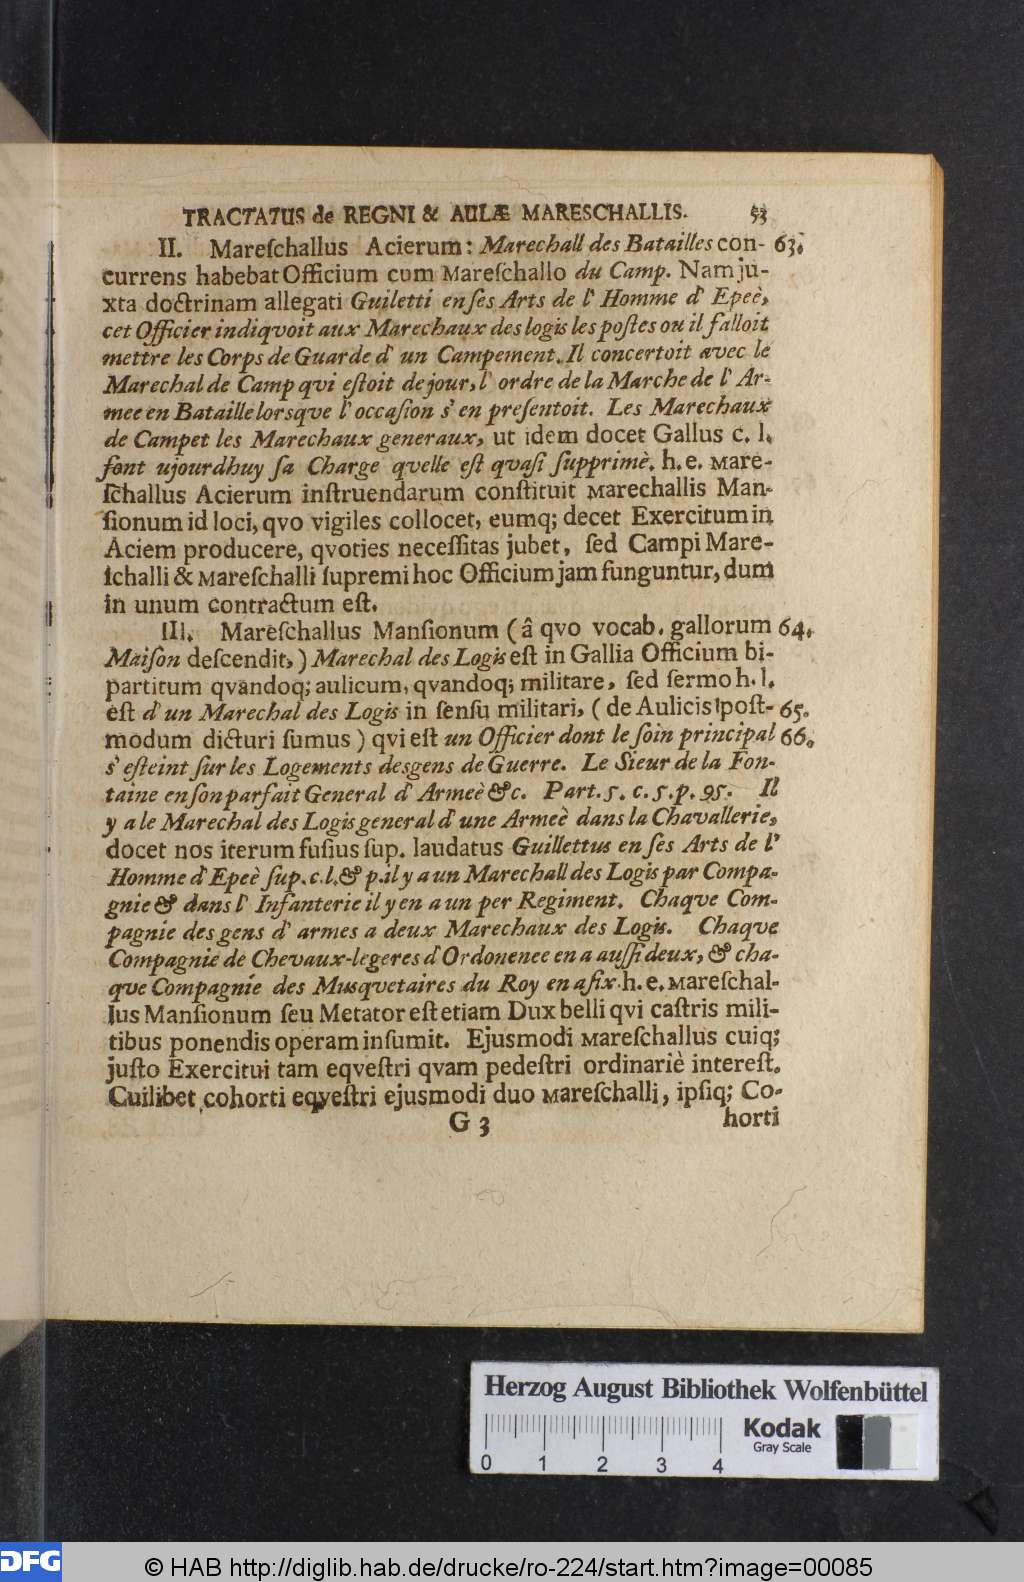 TRACTATUS de REGNI & AULÆ MARESCHALLIS. 53
II. Mareſchallus Acierum: Marechall des Batailles con- 63.
currens habebat Officium cum Mareſchallo du Camp. Nam ju-
xta doctrinam allegati Guiletti en ſes Arts de l' Homme d' Epeè,
cet Officier indiqvoit aux Marechaux des logis les poſtes ou il falloit
mettre les Corps de Guarde d' un Campement. Il concertoit avec le
Marechal de Camp qvi eſtoit de jour, l' ordre de la Marche de l' Ar-
mee en Bataille lorsqve l' occaſion s' en preſentoit. Les Marechaux
de Camp et les Marechaux generaux, ut idem docet Gallus c. l.
font ujourdhuy ſa Charge qvelle eſt qvaſi ſupprimè. h. e. Mare-
ſchallus Acierum inſtruendarum conſtituit Marechallis Man-
ſionum id loci, qvo vigiles collocet, eumq; decet Exercitum in
Aciem producere, qvoties neceſſitas jubet, ſed Campi Mare-
ſchalli & Mareſchalli ſupremi hoc Officium jam funguntur, dum
in unum contractum eſt.
III. Mareſchallus Manſionum (â qvo vocab. gallorum 64.
Maiſon deſcendit,) Marechal des Logis eſt in Gallia Officium bi-
partitum qvandoq; aulicum, qvandoq; militare, ſed ſermo h. l.
eſt d' un Marechal des Logis in ſenſu militari, (de Aulicis poſt- 65.
modum dicturi ſumus) qvi eſt un Officier dont le ſoin principal 66.
s' eſteint ſur les Logements des gens de Guerre. Le Sieur de la Fon-
taine en ſon parfait General d' Armeè &c. Part. 5. c. 5. p. 95. Il
y a le Marechal des Logis general d' une Armeè dans la Chavallerie,
docet nos iterum fuſius ſup. laudatus Guillettus en ſes Arts de l'
Homme d' Epeè ſup. c. l. & p. il y a un Marechall des Logis par Compa-
gnie & dans l' Infanterie il y en a un per Regiment. Chaqve Com-
pagnie des gens d' armes a deux Marechaux des Logis. Chaqve
Compagnie de Chevaux-legeres d' Ordonenee en a auſſi deux, & cha-
qve Compagnie des Musqvetaires du Roy en a ſix. h. e. Mareſchal-
lus Manſionum ſeu Metator eſt etiam Dux belli qvi caſtris mili-
tibus ponendis operam inſumit. Ejusmodi Mareſchallus cuiq;
juſto Exercitui tam eqveſtri qvam pedeſtri ordinariè intereſt.
Cuilibet cohorti eqveſtri ejusmodi duo Mareſchalli, ipſiq; Co-
G 3 horti
Herzog August Bibliothek Wolfenbüttel
0 1 2 3 4
Kodak
Gray Scale
DFG
© HAB http://diglib.hab.de/drucke/ro-224/start.htm?image=00085